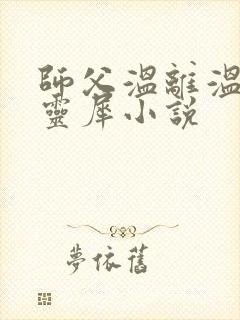 師父溫離溫
靈犀小說
夢依舊